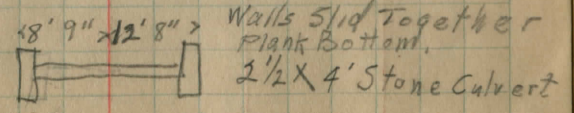 <8' 9" x 12' 8" >
Walls Slid Together
Plank Bottom.
2 1/2 X 4' Stone Culvert